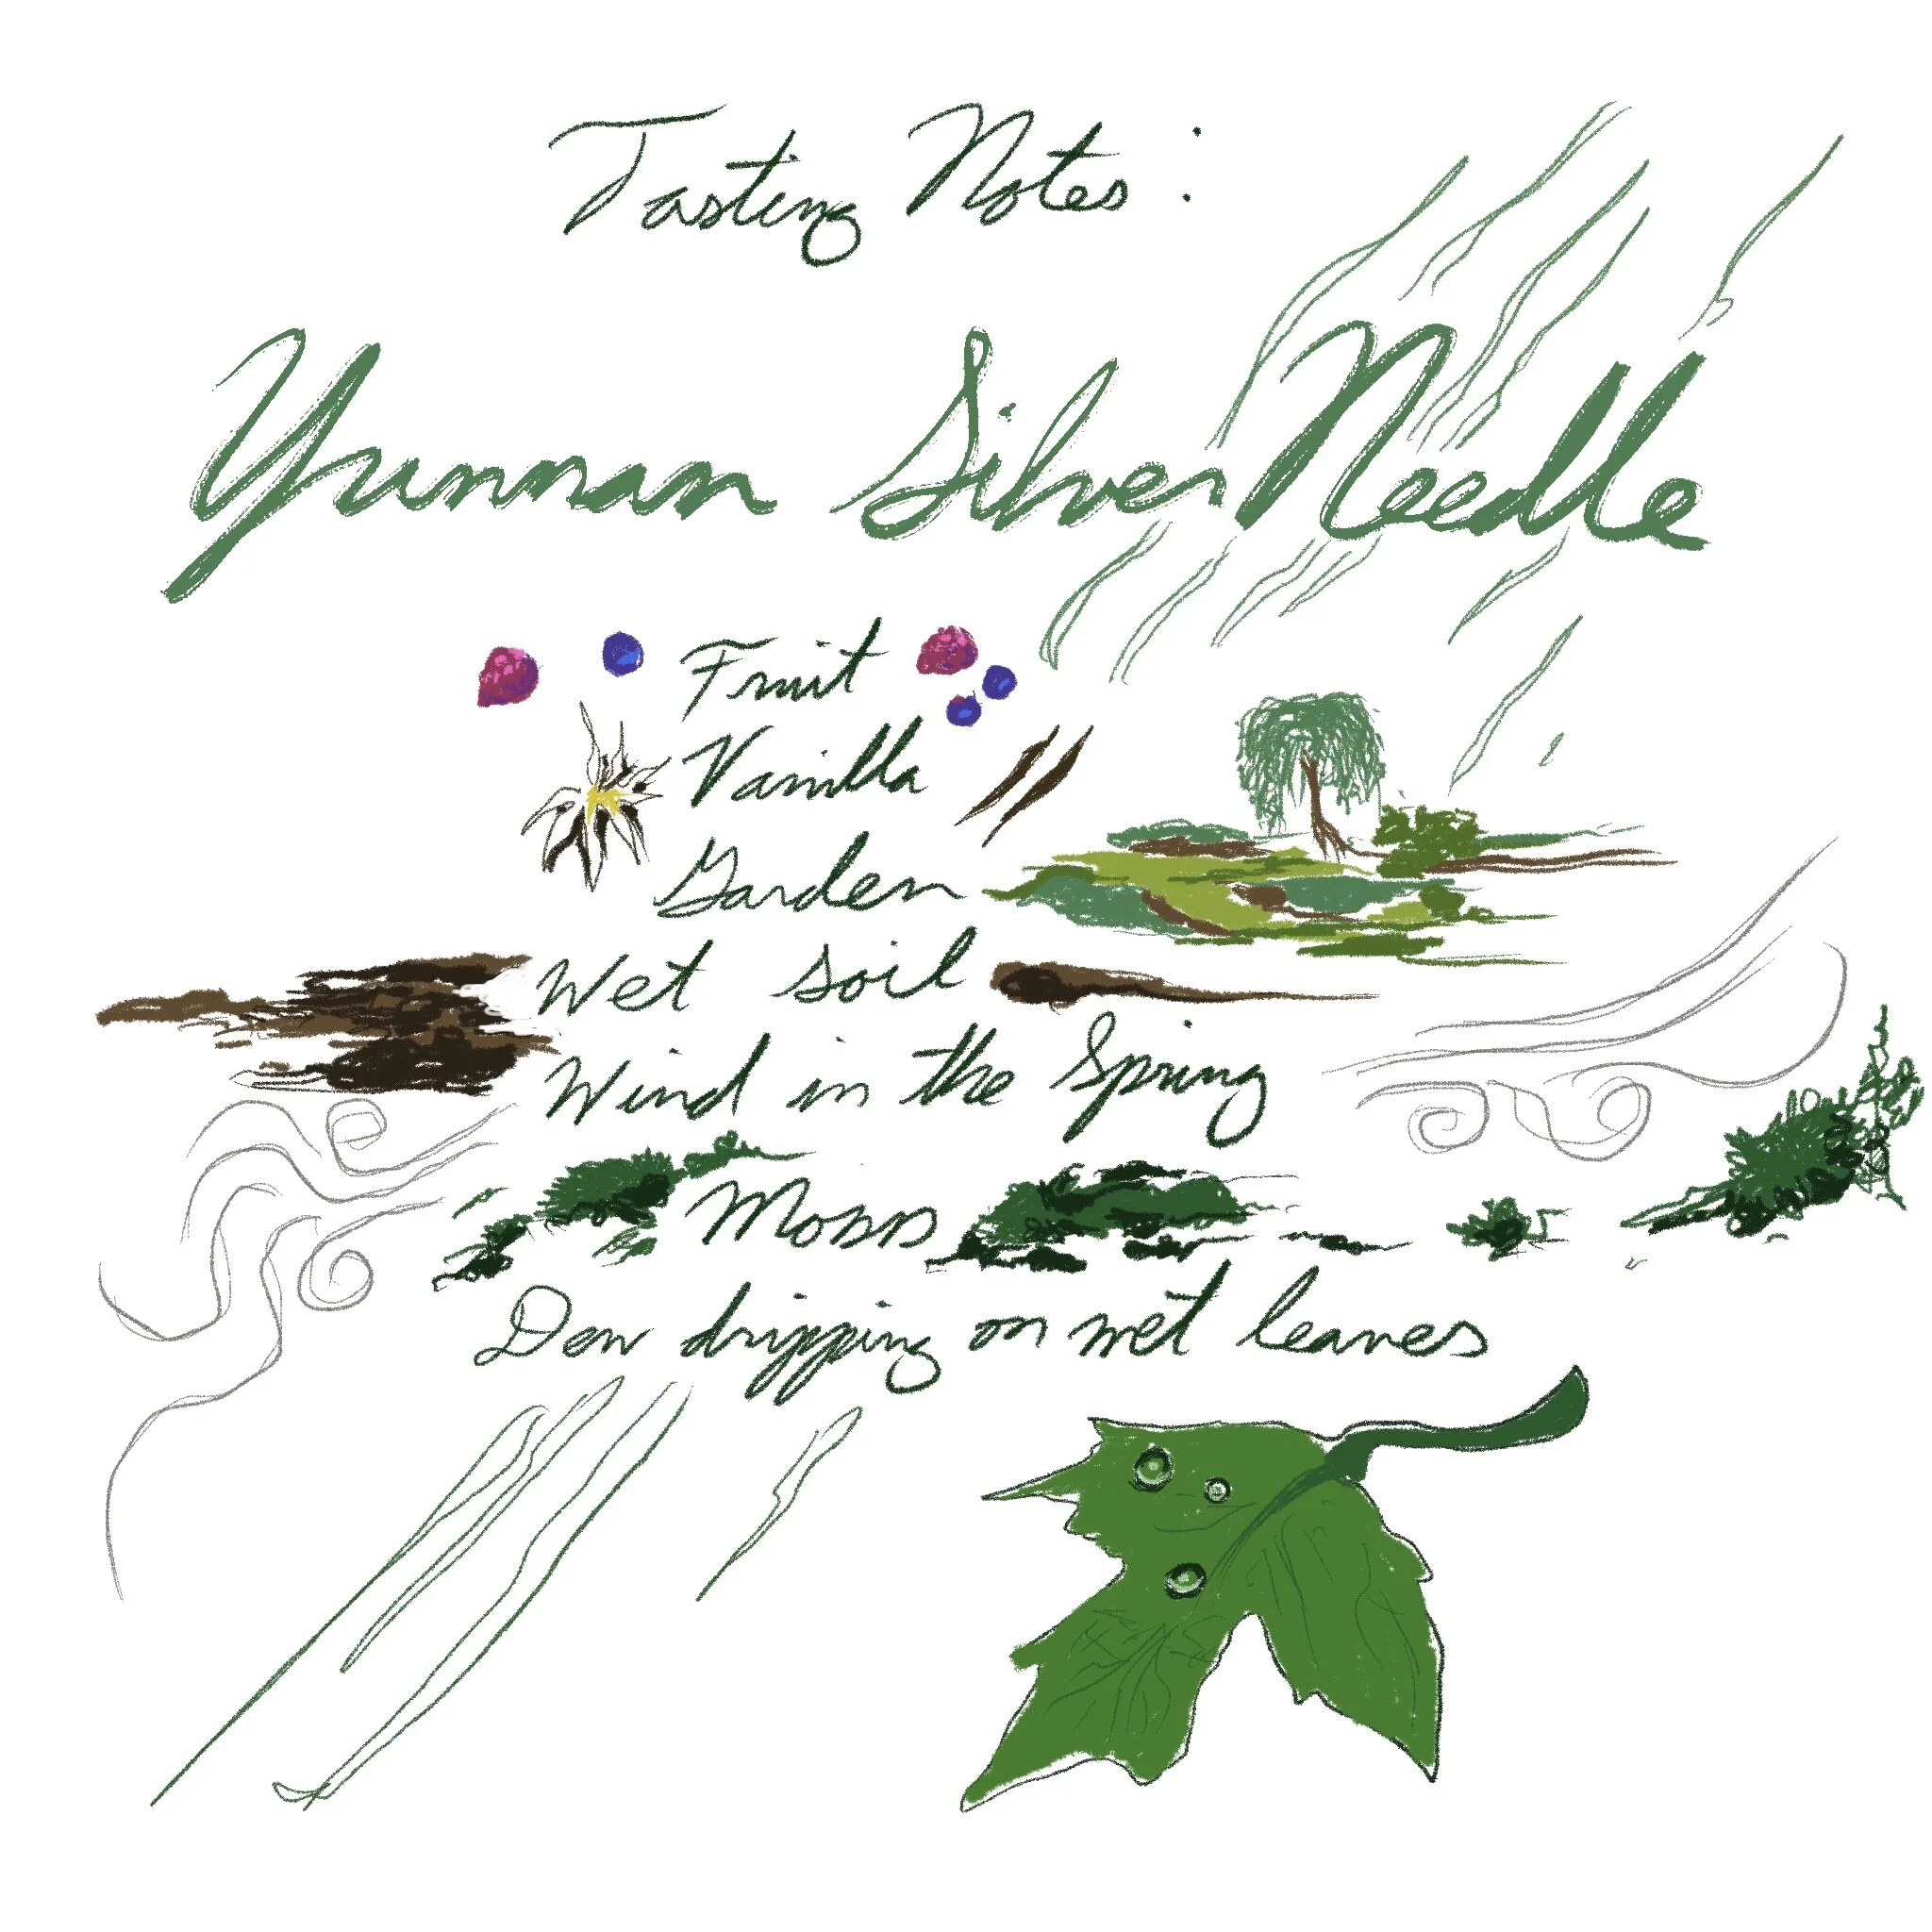 Tasting Notes:
Yunnan Silver Needle
Fruit
Vanilla
Garden
Wet soil
Wind in the Spring
Moss
Dew dripping on wet leaves